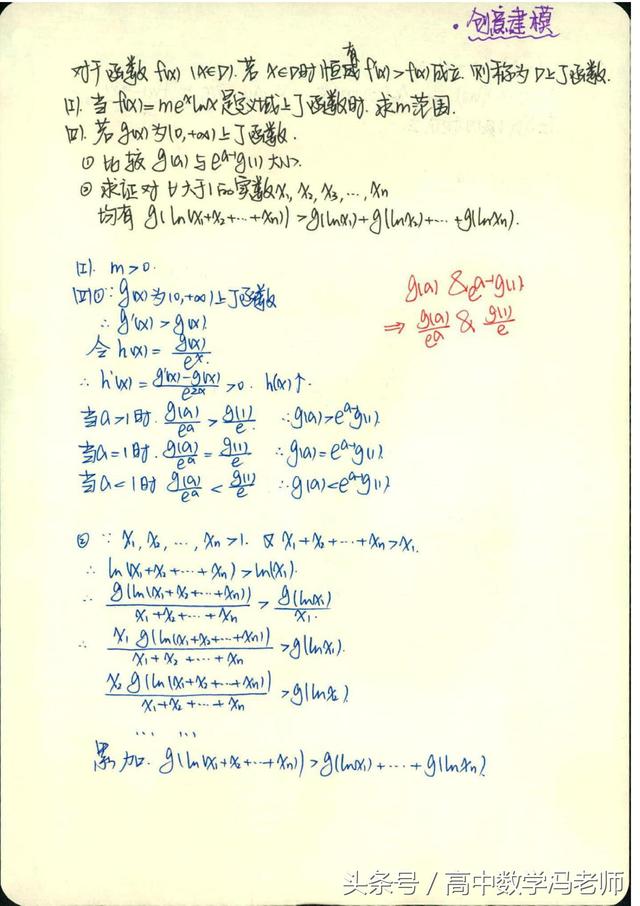 ·创意建模
对于函数f(x) (x∈D).若x∈D时恒有f'(x)>f(x)成立.则称为D上J函数.
(I).当f(x)=me^x lnx是定义域上J函数时.求m范围.
(II).若g(x)为(0,+∞)上J函数.
① 比较g(a)与e^{a-1}g(1)大小.
② 求证对∀大于1的实数x₁,x₂,x₃,…,xn
均有 g(ln(x₁+x₂+…+xn))>g(lnx₁)+g(lnx₂)+…+g(lnxn).
(I). m>0.
(II)①∵g(x)为(0,+∞)上J函数
∴g'(x)>g(x).
令h(x)=g(x)/e^x.
∴h'(x)=(g'(x)-g(x))/e^{2x}>0. h(x)↑.
当a>1时.g(a)/e^a>g(1)/e. ∴g(a)>e^{a-1}g(1).
当a=1时.g(a)/e^a=g(1)/e ∴g(a)=e^{a-1}g(1).
当a<1时 g(a)/e^a<g(1)/e ∴g(a)<e^{a-1}g(1)
g(a) & e^{a-1}g(1).
⇒ g(a)/e^a & g(1)/e
② ∵x₁,x₂,…,xn>1. 又x₁+x₂+…+xn>x₁.
∴ln(x₁+x₂+…+xn)>ln(x₁).
∴ g(ln(x₁+x₂+…+xn))/(x₁+x₂+…+xn) > g(lnx₁)/x₁.
∴ x₁g(ln(x₁+x₂+…+xn))/(x₁+x₂+…+xn) >g(lnx₁).
x₂g(ln(x₁+x₂+…+xn))/(x₁+x₂+…+xn) >g(lnx₂)
… …
累加. g(ln(x₁+x₂+…+xn))>g(lnx₁)+…+g(lnxn).
头条号 / 高中数学冯老师